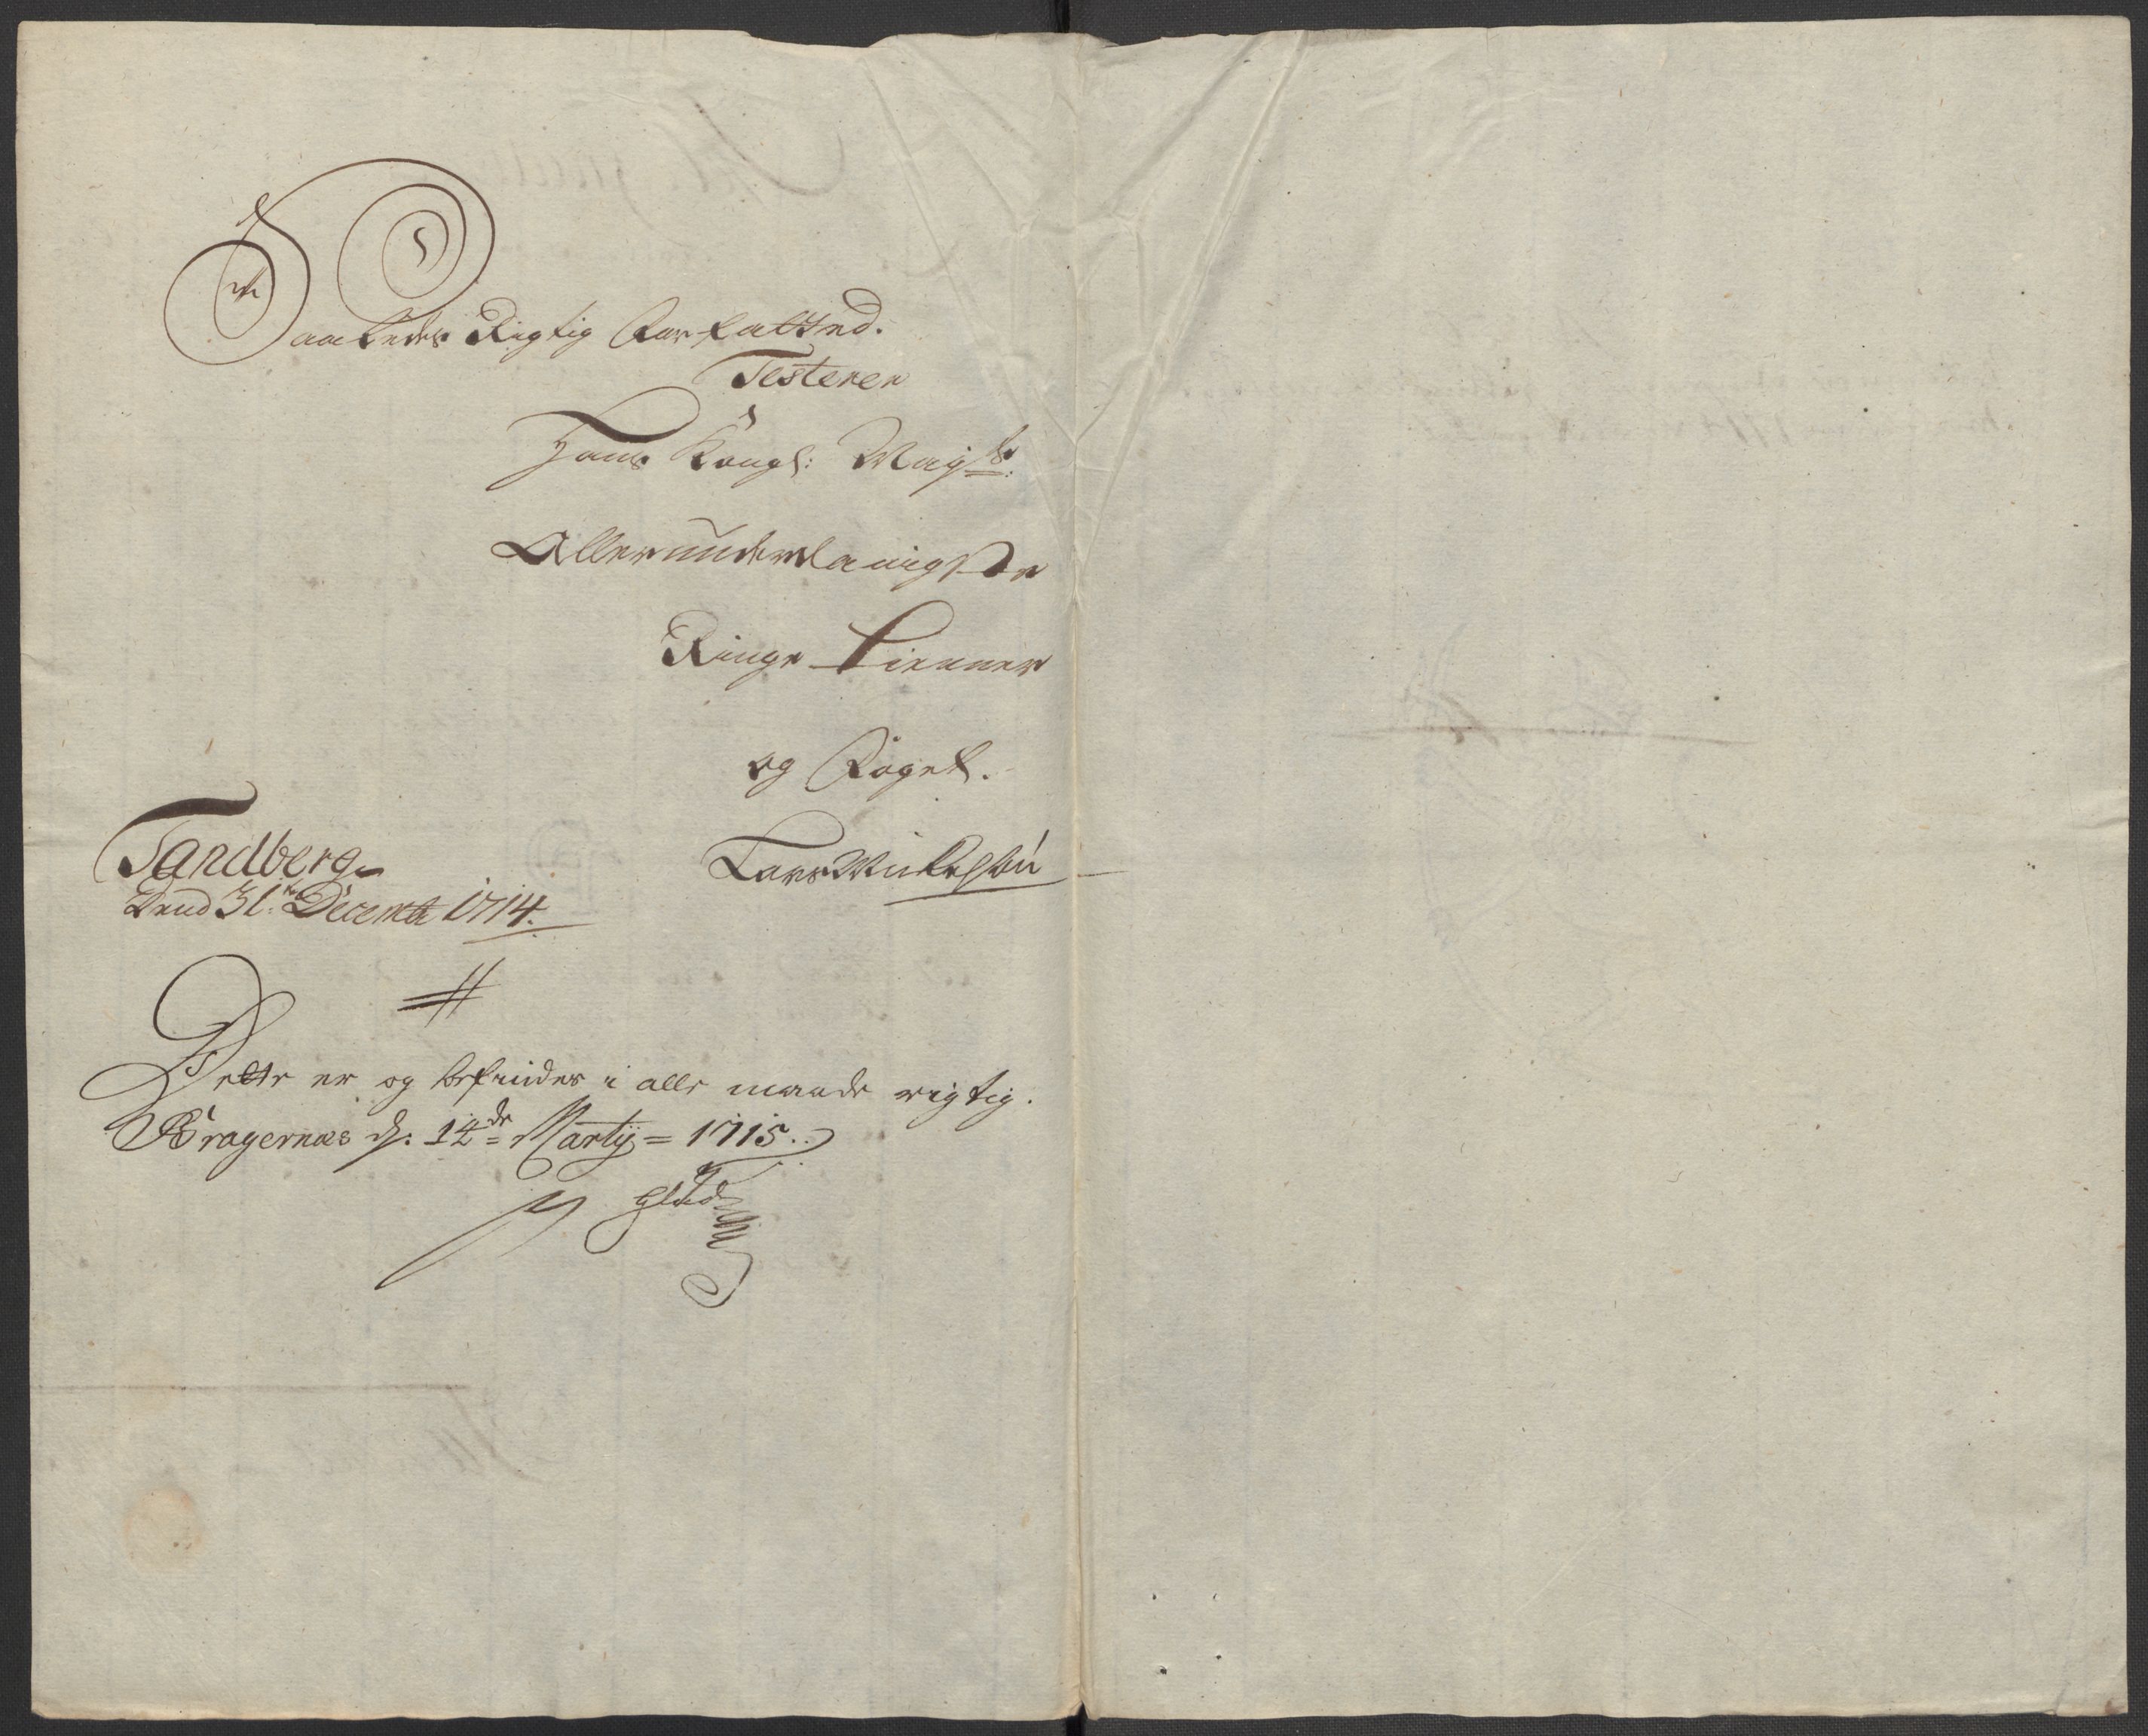 Saaledes Rigtig Forfatted.
Testerer
Hans Kongl: Mayts:
Allerunderdanigste
Ringe Tienner
og Foget.
Lars
Tandberg
Dend 31te Decembr 1714.
Dette er og befindes i alle maade rigtig.
Bragernæs d: 12de Martij = 1715.
Glud